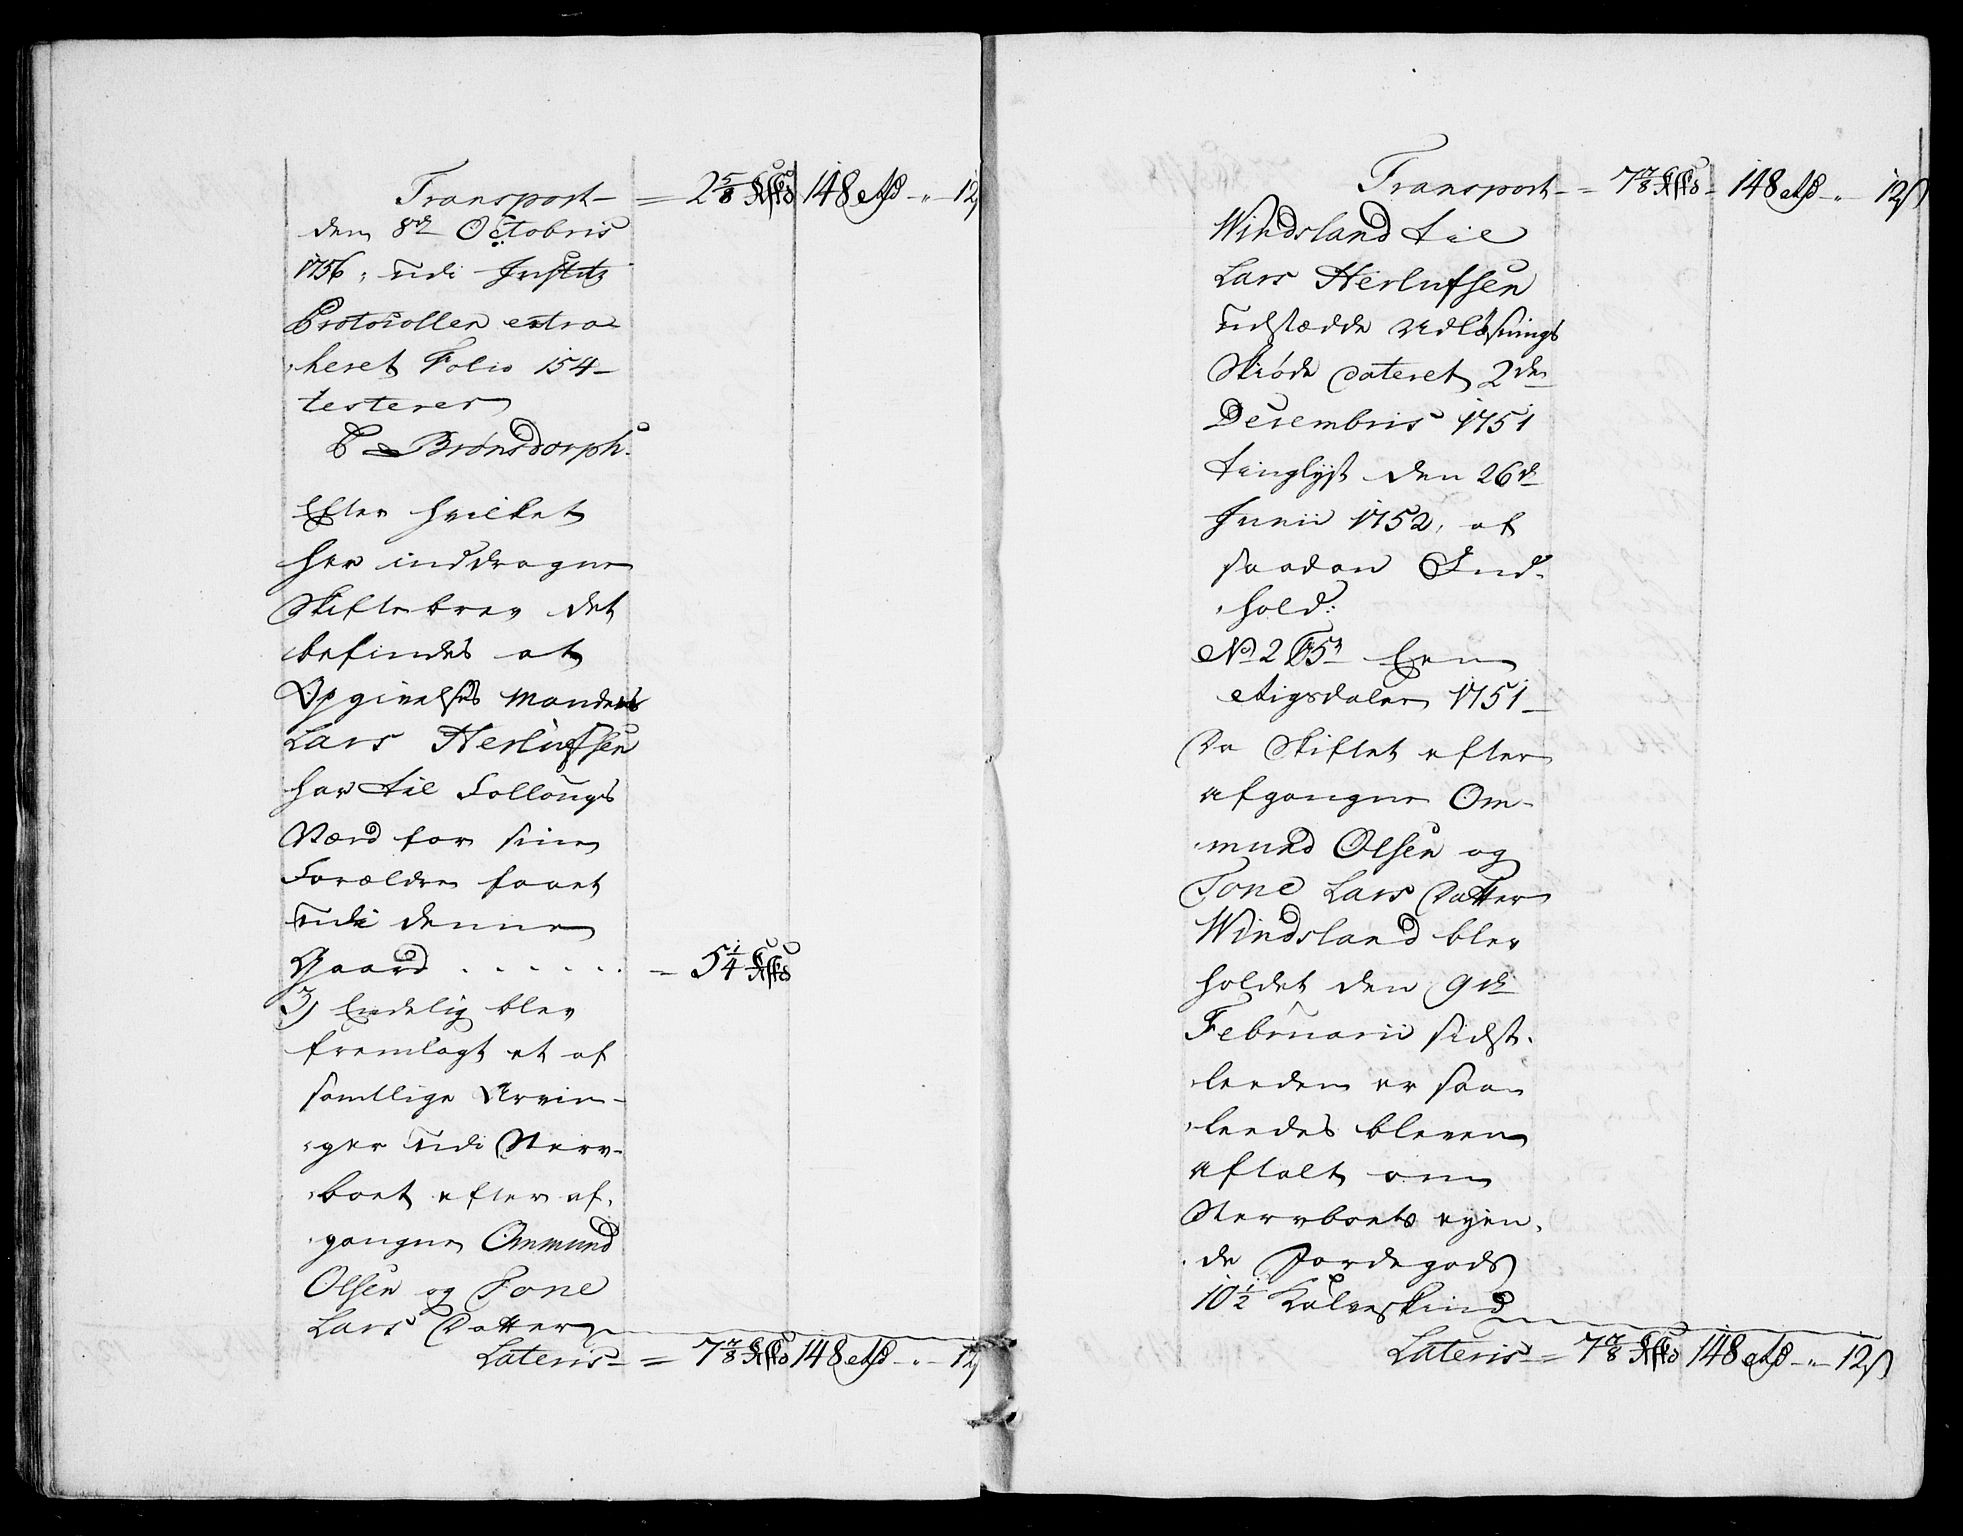 Transport – = 2 5/8 Kskd 148 Rd – " – 12
den 8de Octobris
1756, udi Justits
Protocollen extra-
heret Folio 154 –
testerer
C Brønsdorph.
Efter hvilket
her inddragne
Skiftebrev det
befindes at
Opgivelses Manden
Lars Herlufsen
har til Follougs
Værd for sine
Forældre faaet
udi denne
Gaard . . . . . . – 5 1/4 Kskd
3) Endelig blev
fremlagt et af
samtlige Arvin-
ger udi Sterv-
boet efter af-
gangne Ommund
Olsen og Tone
Lars Datter
Lateris – = 7 7/8 Kskd 148 Rd – " – 12
Transport – = 7 7/8 Kskd – 148 Rd – " – 12 s
Windsland til
Lars Herlufsen
udstædde Udløsnings
Skiøde dateret 2den
Decembris 1751
tinglyst den 26de
Junii 1752, af
saadan Ind-
hold:
No 2 Een
Rigsdaler 1751 –
Da Skiftet efter
afgangne Om-
mund Olsen og
Tone Lars Datter
Windsland blev
holdet den 9de
Februarii sidst-
leeden er saa-
leedes bleven
aftalt om
Stervboets eyen-
de Jordegods
10 1/2 Kalveskind
Lateris – = 7 7/8 Kskd 148 Rd – " – 12 s